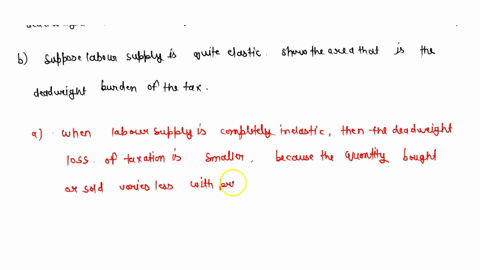 b) Suppose labour supply is quite elastic. show the area that is the
deadwright burden of the tax.
a) when labour supply is completely inelastic, then the deadwright
loss of taxation is smaller, because the quantity bought
or sold varies less with pri